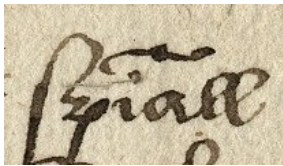 sp̄iall